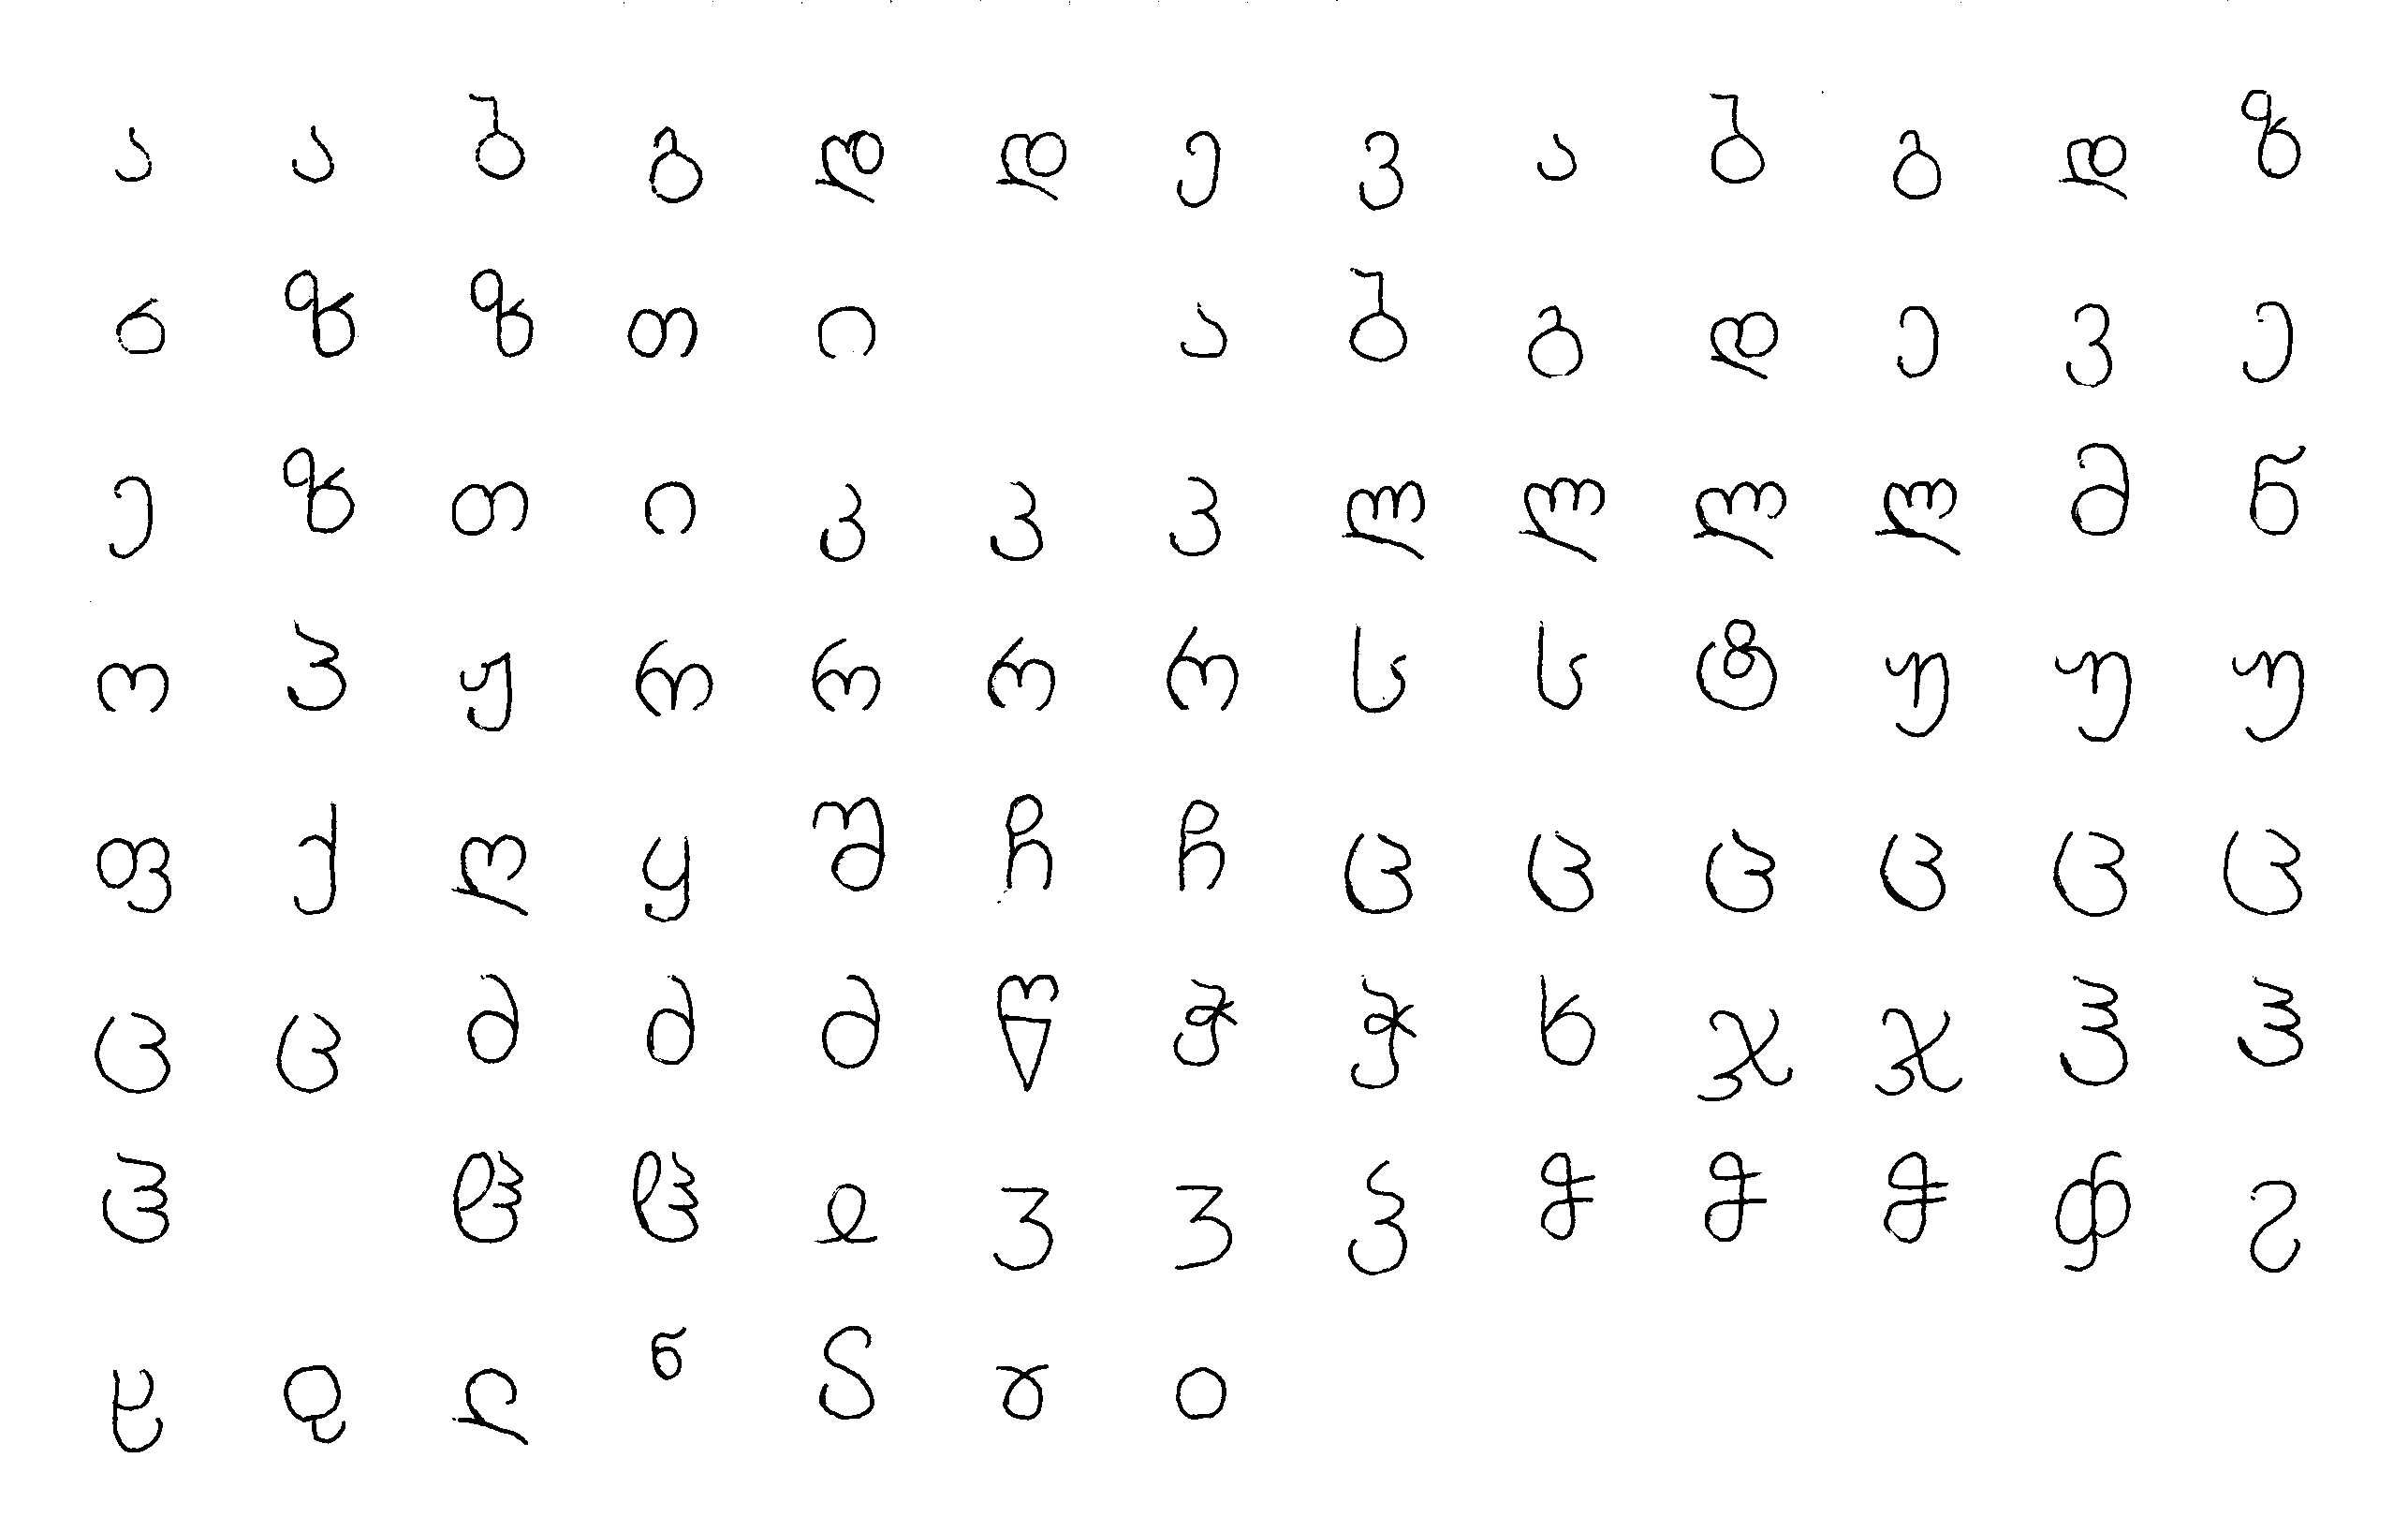 ა ა ბ გ დ დ ე ვ ა ბ გ დ ზ
ზ ზ თ ი ა ბ გ დ ე ვ ე
ე ზ თ ი კ კ კ ლ ლ ლ ლ მ ნ
ო პ ჟ რ რ რ რ ს ს ტ უ უ უ
ფ ქ ღ ყ შ ჩ ჩ ც ც ც ც ც ც
ც ც ძ ძ ძ წ ჭ ჭ ხ ჯ ჯ ჰ ჰ
ჰ ჱ ჱ ჲ ჳ ჳ ჴ ჵ ჵ ჵ ჶ ჷ
ჸ ჹ ჺ ჼ ჽ ჾ ჿ